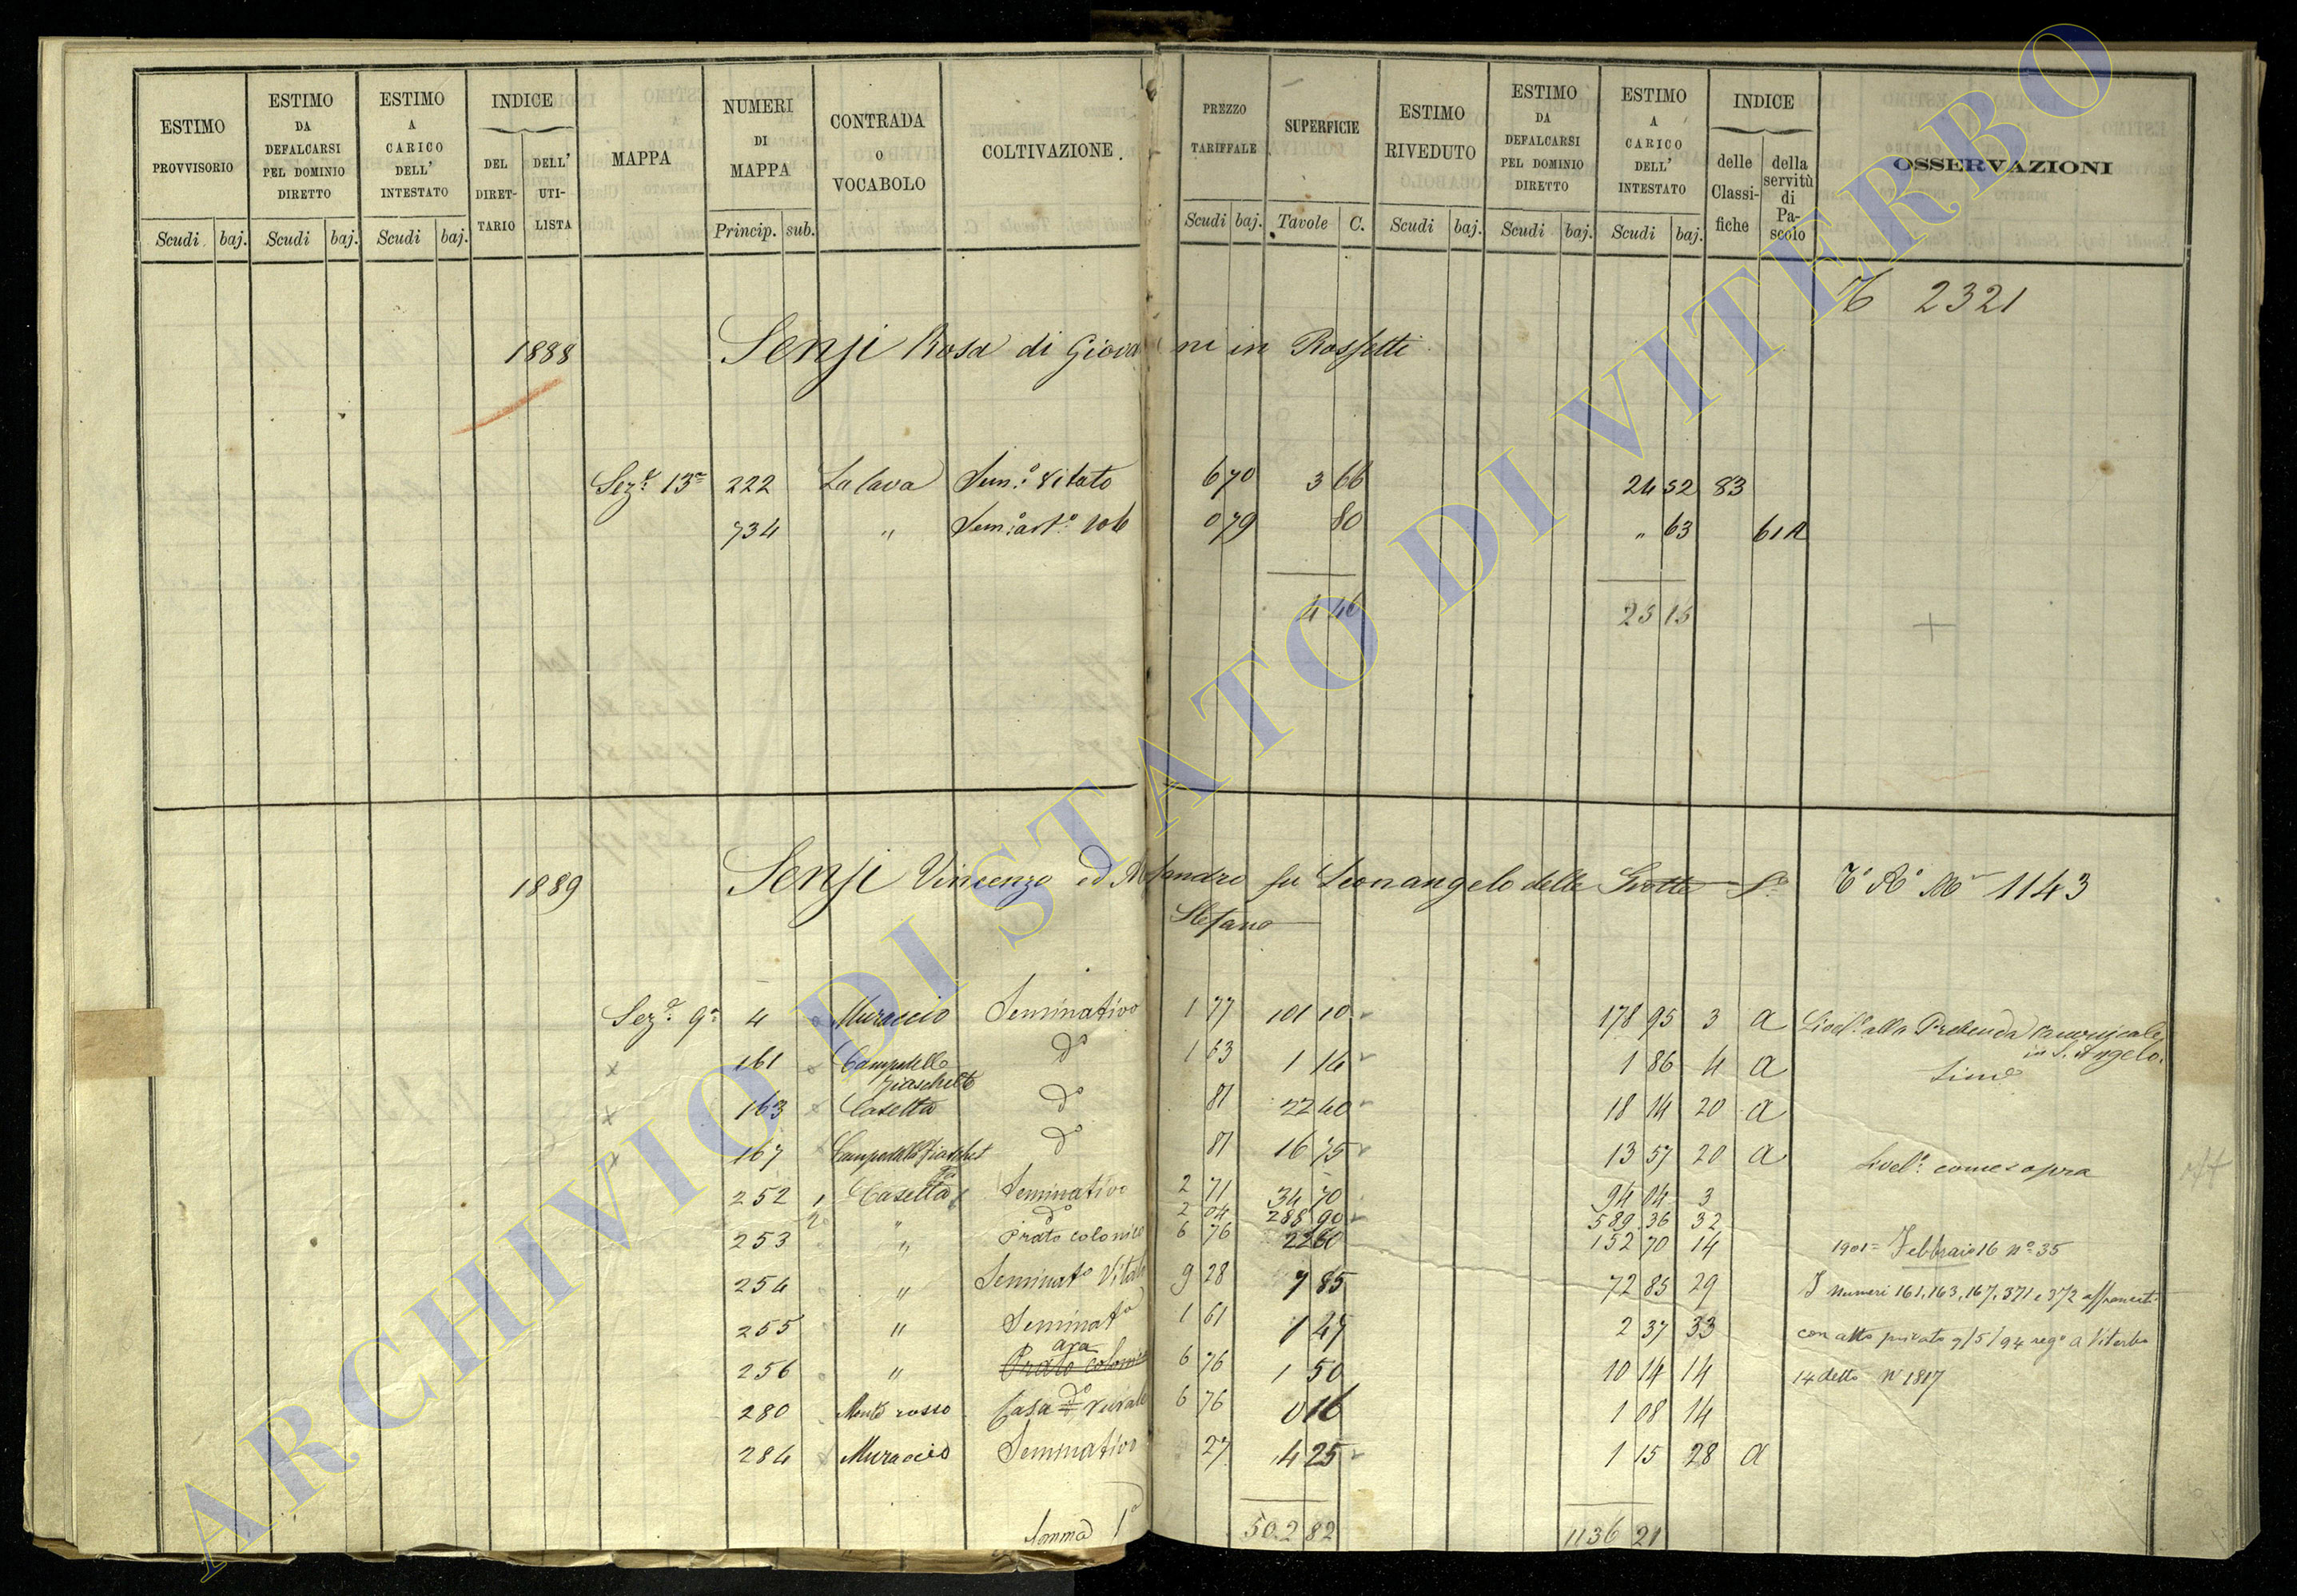 ESTIMO PROVVISORIO
Scudi baj.
ESTIMO DA DEFALCARSI PEL DOMINIO DIRETTO
Scudi baj.
ESTIMO A CARICO DELL' INTESTATO
Scudi baj.
INDICE
DEL DIRET- TARIO
DELL' UTI- LISTA
MAPPA
NUMERI DI MAPPA
Princip. sub.
CONTRADA O VOCABOLO
COLTIVAZIONE.
PREZZO TARIFFALE
Scudi baj.
SUPERFICIE
Tavole C.
ESTIMO RIVEDUTO
Scudi baj.
ESTIMO DA DEFALCARSI PEL DOMINIO DIRETTO
Scudi baj.
ESTIMO A CARICO DELL' INTESTATO
Scudi baj.
INDICE
delle Classi- fiche
della servitù di Pa- scolo
OSSERVAZIONI
2321
1888 Sensi Rosa di Giovanni in Rossetti
Sez.e 13a 222 La cava Sem.o Vitato 6 70 3 66 24 52 83
734 " 0 79 80 " 63 61 A
4 46 25 15
1889 Sensi Vincenzo ed Alesandro fu Leonangelo delle Grotte S.o 1143
Stefano
Sez.e 9a 4 Muraccio Seminativo 1 77 101 10 178 95 3 a Livell.o alla Prebenda Canonicale
in S. Angelo.
161 Campitello do 1 63 1 14 1 86 4 a
163 Casetta do 81 22 40 18 14 20 a
167 do 81 16 75 13 57 20 a Livel.o come sopra
252 1 Casetta Seminativo 2 71 34 70 94 04 3
2 " do 2 04 288 90 589 36 32
253 " Prato colonico 6 76 22 60 152 70 14 1901 = Febbraio 16 No 35
254 " Seminato Vitato 9 28 7 85 72 85 29 I numeri 161, 163, 167, 371 e 372 affrancati
255 " Seminato 1 61 1 47 2 37 33 con atto privato 9/5/94 rego a Viterbo
ara
256 " Prato colonico 6 76 1 50 10 14 14 14 detto No 1817
280 Monte rosso Casa do rurale 6 76 0 16 1 08 14
284 Muraccio Seminativo 27 4 25 1 15 28 a
Somma 1a 502 82 1136 21
ARCHIVIO DI STATO DI VITERBO